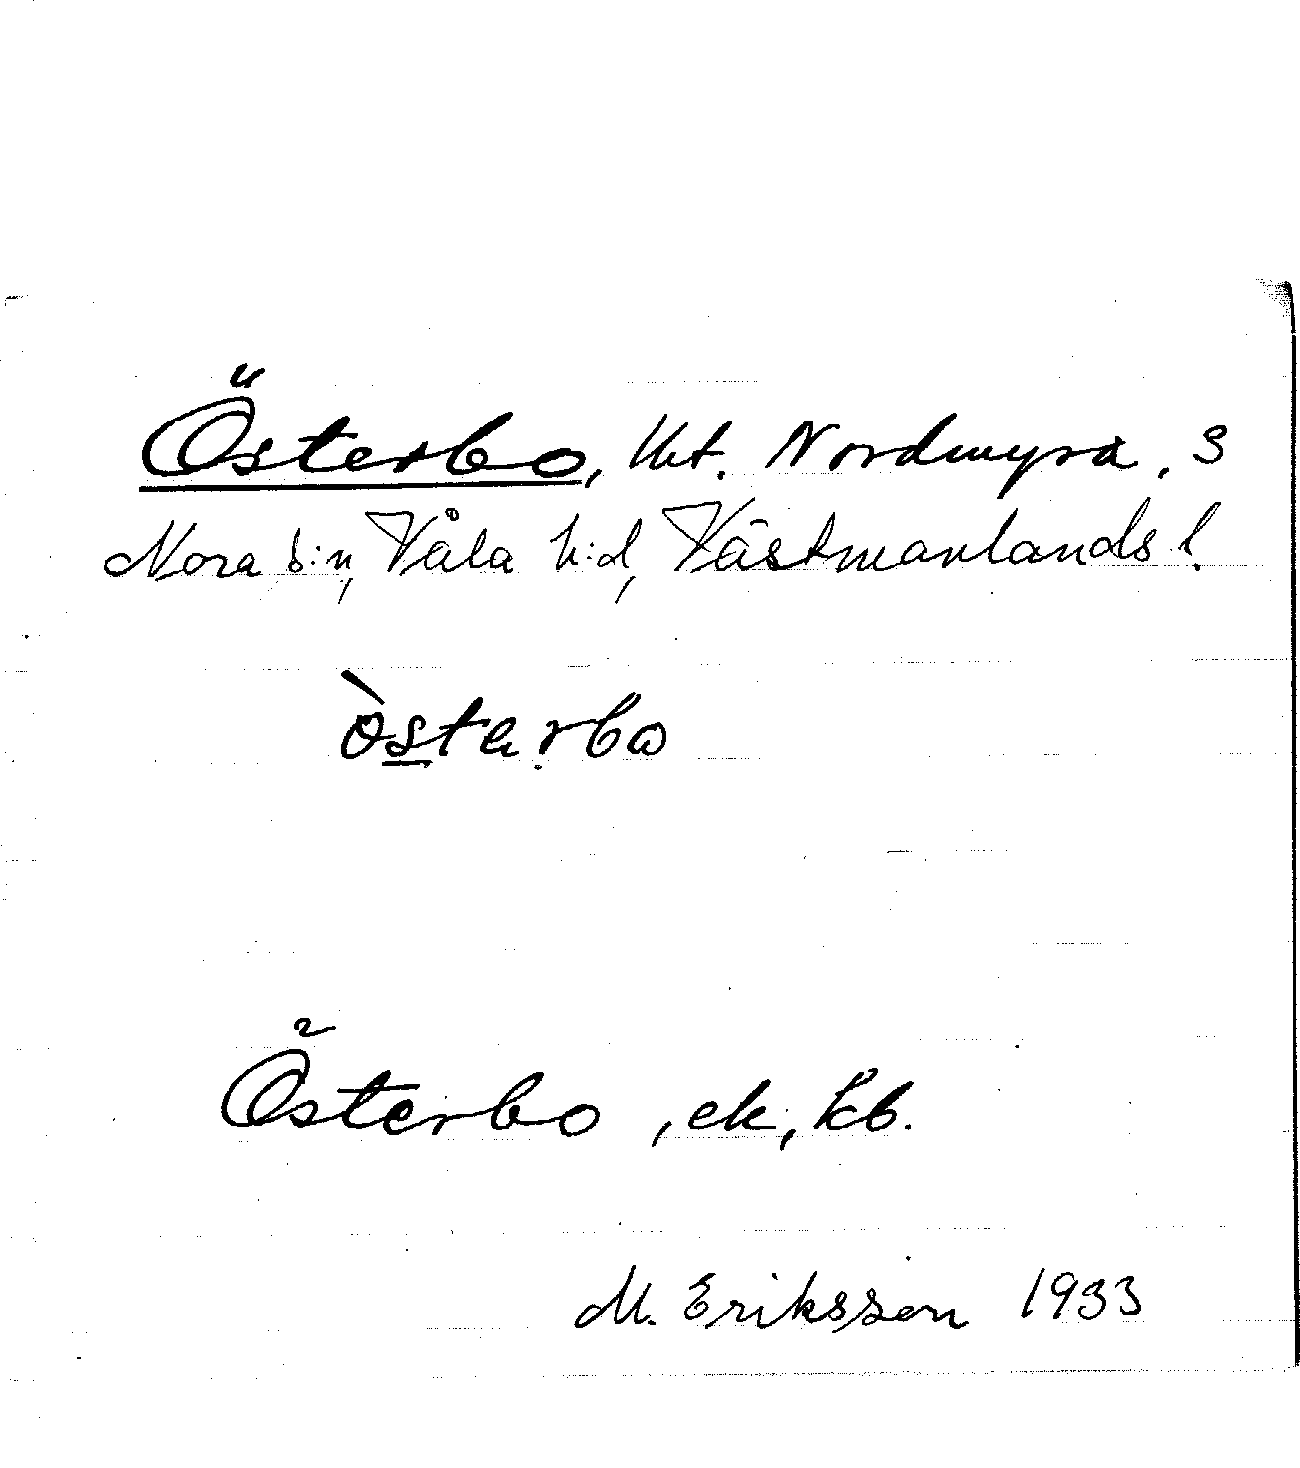 Österbo, lht. Nordmyra, S
Nora s:n, Våla h:d, Västmanlands l.
òstarbo
Österbo, ek, kb.
M. Eriksson 1933